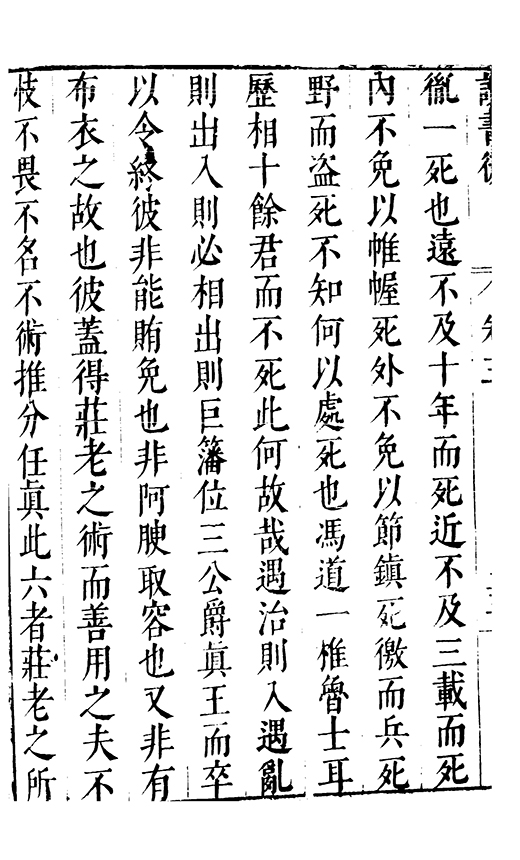 讀書後 卷三
徹一死也遠不及十年而死近不及三載而死
內不免以帷幄死外不免以節鎮死徼而兵死
野而盜死不知何以處死也馮道一椎魯士耳
歷相十餘君而不死此何故哉遇治則入遇亂
則出入則必相出則巨籓位三公爵眞王而卒
以令終彼非能賄免也非阿腴取容也又非有
布衣之故也彼蓋得莊老之術而善用之夫不
忮不畏不名不術推分任眞此六者莊老之所